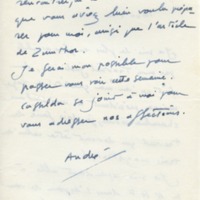 que vous avez bien voulu prépa-
rer pour moi, ainsi que l'article
de Zumthor.
Je ferai mon possible pour
passer vous voir cette semaine.
se joint à moi pour
vous adresser nos affections.
André